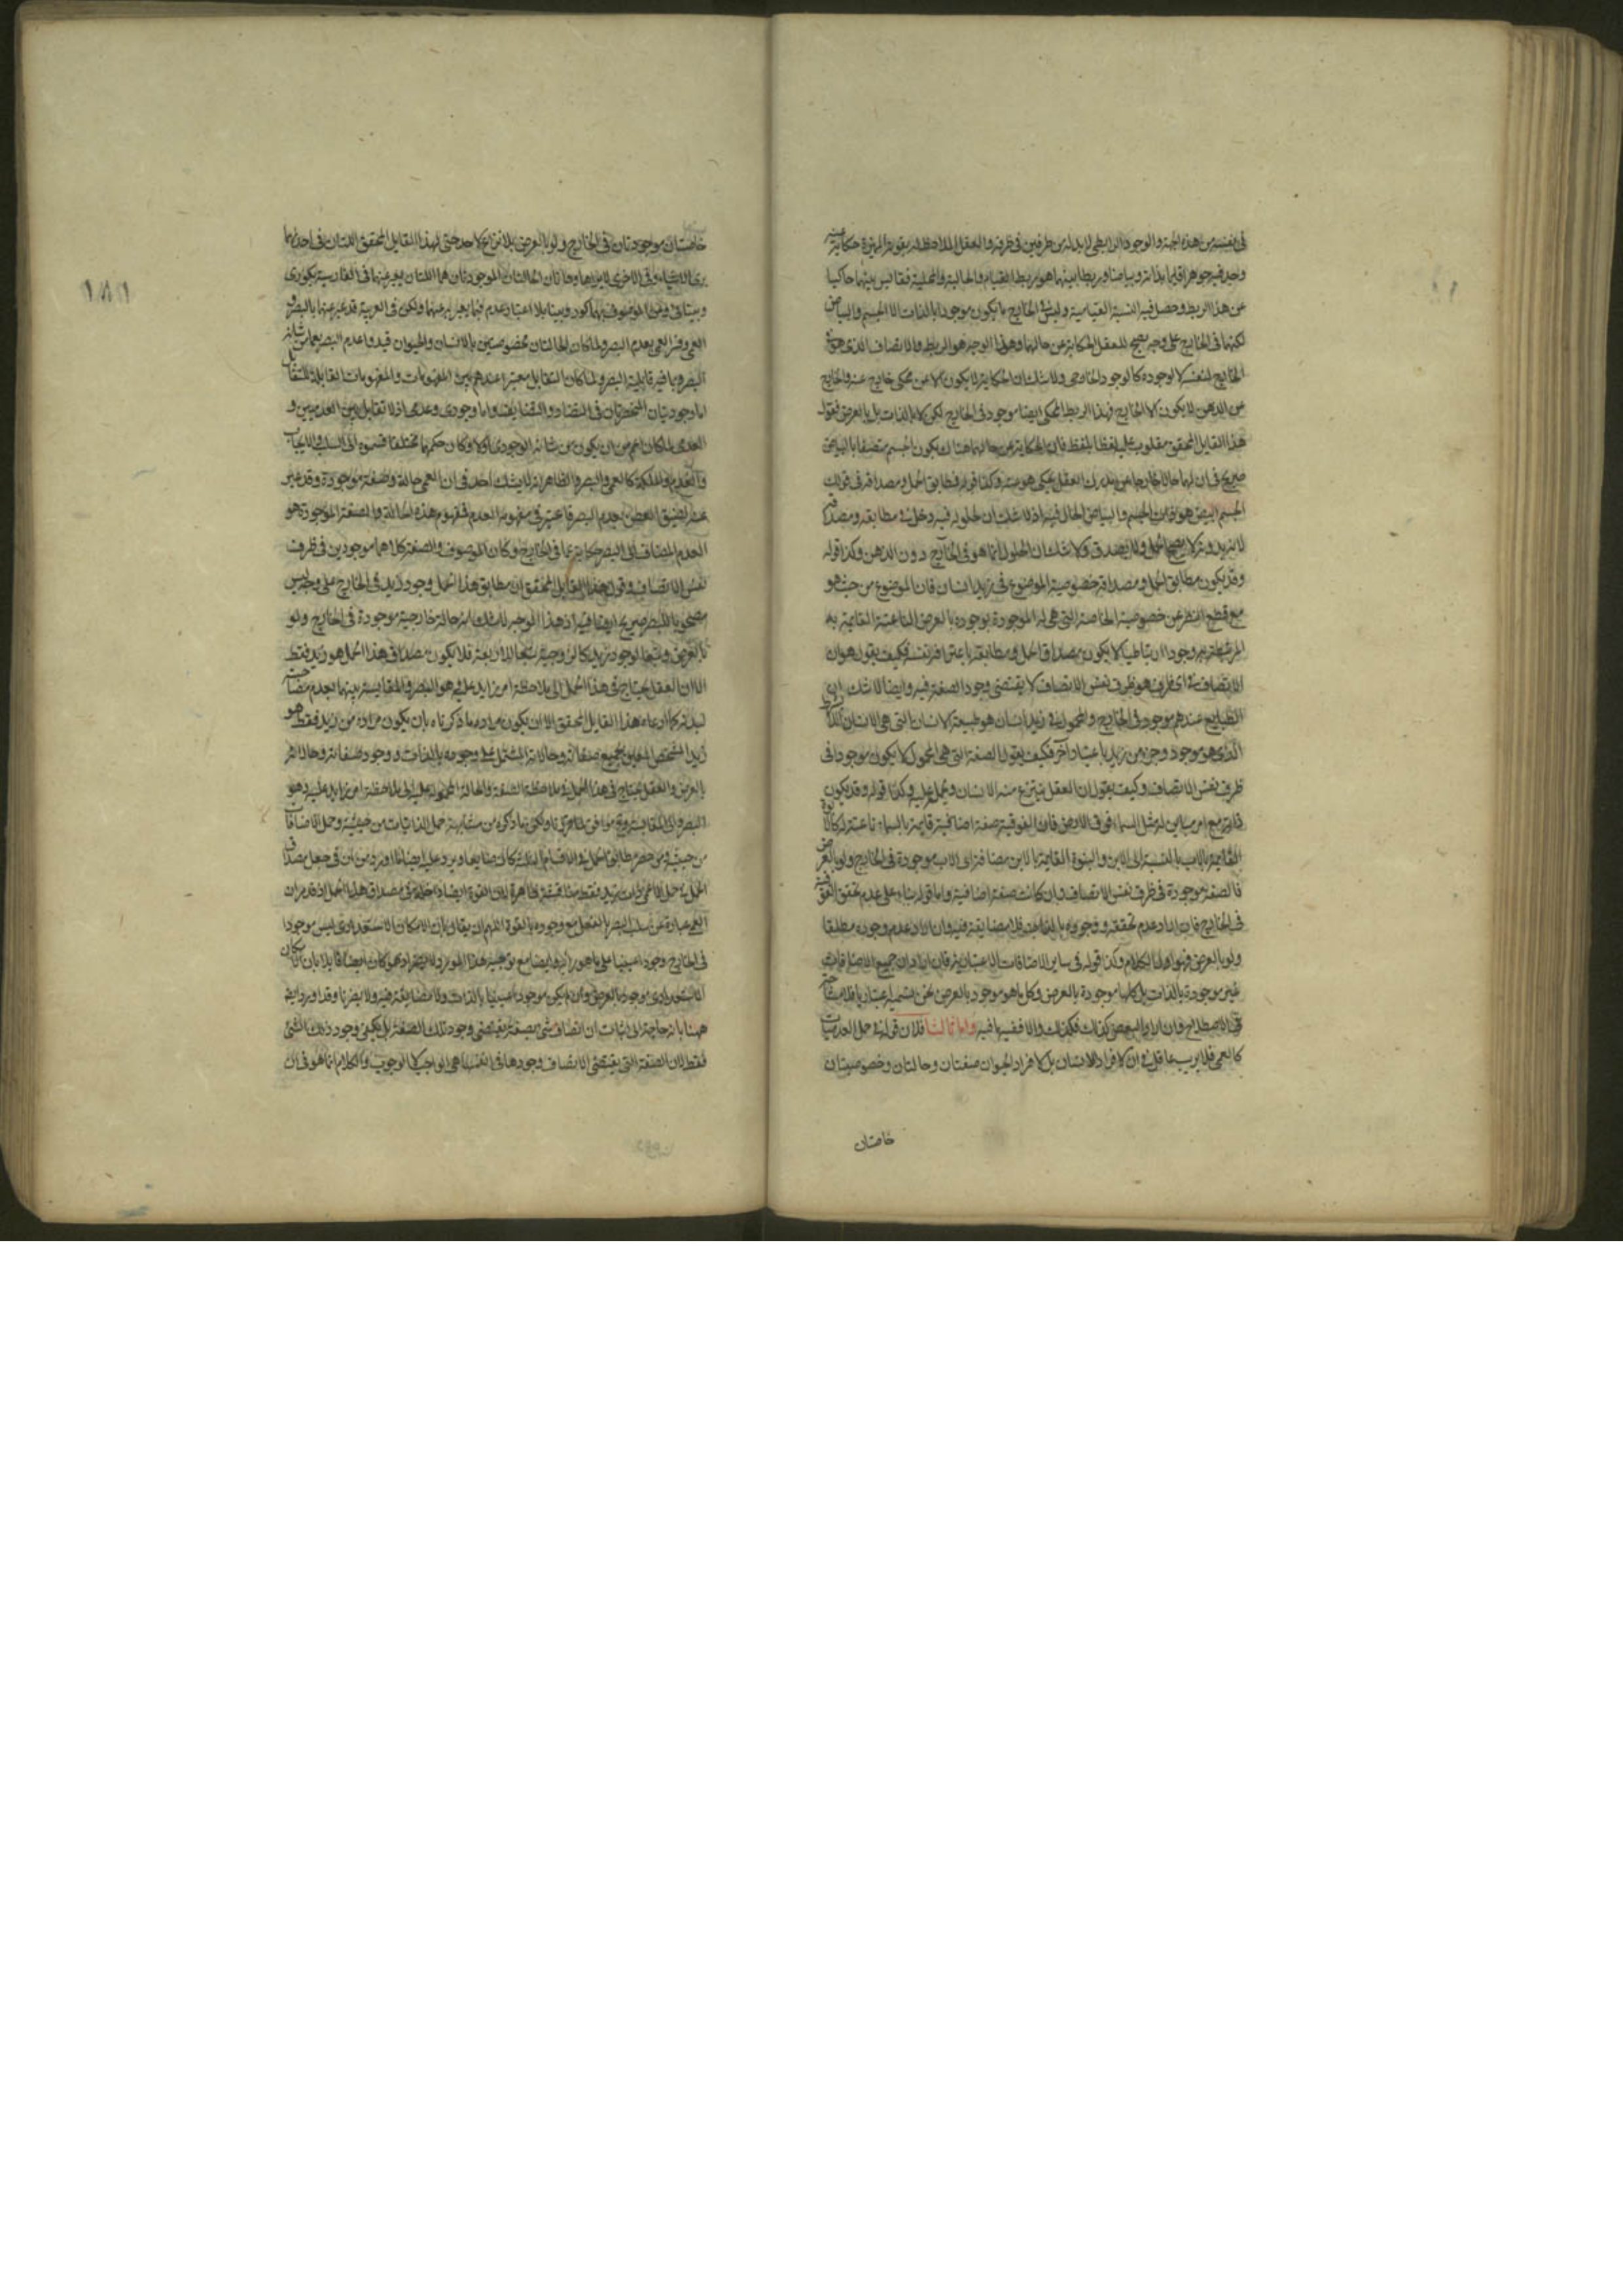 في نفسه من هذه الجهة والوجود الرابطي لا بد له من طرفين في ظرفه والعقل الملاحظ له بقوة المميزة حكاية
وجد فيه جوهرا قايما بذاته وبياضا وربطا بينهما هو ربط القيام والحالية والمحلية فقايس بينهما حاكيا
عن هذا الربط وحصل فيه النسبة القيامية وليس في الخارج ما يكون موجودا بالذات الا الجسم والبياض
لكنهما في الخارج على وجه يصح للعقل الحكاية عن حالهما وهذا الوجه هو الربط والاتصاف الذي هو في
الخارج لنفسه لا لوجوده كالوجود الخارجي ولا شك ان الحكاية لا يكون الا عن محكي خارج عنه والخارج
عن الذهن لا يكون الا الخارج فهذا الربط المحكي ايضا موجود في الخارج لكن لا بالذات بل بالعرض فقول
هذا القايل المحقق مقلوب عليه لفظا بلفظ فان الحكاية عن حالهما هناك يكون الجسم متصفا بالبياض
صريح في ان لهما حالا خارجا من مدرك العقل يحكي هو عنه وكذا قوله فمطابق الحمل ومصداقه في قولك
الجسم ابيض هو ذات الجسم والبياض الحال فيه اذ لا شك ان لحلوله فيه دخلا في مطابقه ومصداقه
لانه بدونه لا يصح الحمل ولا يصدق ولا شك ان الحلول انما هو في الخارج دون الذهن وكذا قوله
وقد يكون مطابق الحمل ومصداقه خصوصية الموضوع في زيد انسان فان الموضوع من حيث هو
مع قطع النظر عن خصوصية الخاصة التي هي له الموجودة بوجوده بالعرض الناعتية القايمة به
المرتبطة به وجودا ارتباطيا لا يكون مصداق الحمل ومطابقه باعترافه نفسه فكيف يقول هو ان
الاتصاف في اي ظرف هو ظرف نفس الاتصاف لا يقتضي وجود الصفة فيه وايضا لا شك ان
الطبايع عندهم موجود في الخارج والمحمول في زيد انسان هو طبيعة الانسان التي هي الانسان
الذي هو موجود وجزء من زيد باعتبار آخر فكيف يقول الصفة التي هي المحمول لا يكون موجودا في
ظرف نفس الاتصاف وكيف يقول ان العقل ينتزع منه الانسان ويحمل عليه وكذا قوله وقد يكون
ذاته مع امر مباين له مثل السماء فوق الارض فان الفوقية صفة اضافية قايمة بالسماء ناعتة له كالابوة
القايمة بالاب بالنسبة الى الابن والبنوة القايمة بالابن مضافة الى الاب موجودة في الخارج ولو بالعرض
فالصفة موجودة في ظرف نفس الاتصاف وان كانت صفة اضافية واما قوله بناء على عدم تحقق الفوقية
في الخارج فان اراد عدم تحققه ووجوده بالذات فلا مضايقة فيه وان اراد عدم وجوده مطلقا
ولو بالعرض فهو اول الكلام وكذا قوله في ساير الاضافات الاعتبارية فان اراد ان جميع الاضافات
غير موجودة بالذات بل كلها موجودة بالعرض وكل ما هو موجود بالعرض نحن نسميه اعتباريا فلا مشاحة
في الاصطلاح وان اراد البعض كذلك فكذلك والا ففيه ما فيه واما ثالثا فلان قوله في حمل العدميات
كالعمى فلا يريب عاقل في ان لافراد الانسان بل لافراد الحيوان صفتان وحالتان وخصوصيتان
خاصتان
١٨١
خاصتان موجودتان في الخارج ولو بالعرض بلا نزاع لاحد حتى لهذا القايل المحقق اللتان في احديهما
يرى الاشياء وفي الاخرى لا يراها وهاتان الحالتان الموجودتان هما اللتان يعبر عنهما في الفارسية بكوري
وبينائي وعن الموصوف بهما كور وبينا بلا اعتبار عدم فيما يعبر به عنهما ولكن في العربية قد عبر عنهما بالبصر و
العمى وفسر العمى بعدم البصر ولما كان الحالتان مخصوصتين بالانسان والحيوان قيدوا عدم البصر بعما من شانه
البصر وما فيه قابلية البصر ولما كان التقابل معتبرا عندهم بين المفهومات والمفهومات القابلة للتقابل
اما وجوديان المنحصرتان في التضاد والتضايف واما وجودي وعدمي اذ لا تقابل بين العدميين و
العدمي لما كان اعم من ان يكون من شانه الوجودي او لا وكان حكمهما مختلفا قسموه الى السلب والايجاب
والعدم والملكة كالعمى والبصر والظاهر انه لا يشك احد في ان العمى حالة وصفة موجودة وقد عبر
عنه لضيق اللفظ بعدم البصر فاعتبر في مفهومه العدم فمفهوم هذه الحالة والصفة الموجودة هو
العدم المضاف الى البصر حكاية عما في الخارج وكان الموصوف والصفة كلاهما موجودين في ظرف
نفس الاتصاف وقول هذا القايل المحقق ان مطابق هذا الحمل وجود زيد في الخارج على وجه ليس
مصحوبا للبصر صريح ايضا فيه اذ هذا الوجه لا شك انه حالة خارجية موجودة في الخارج ولو
بالعرض وتبعا لوجود زيد كالزوجية تبعا للاربعة فلا يكون مصداق هذا الحمل هو زيد فقط
الا ان العقل يحتاج في هذا الحمل الى ملاحظة امر زايد عليه هو البصر والمقايسة بينهما بعدم مصاحبته
لبدنه كما ادعاه هذا القايل المحقق الا ان يكون مراده ما ذكرناه بان يكون مراده من زيد فقط هو
زيد المشخص المعين بجميع صفاته وحالاته المشتمل على وجوده بالذات ووجود صفاته وحالاته
بالعرض والعقل يحتاج في هذا الحمل في ملاحظة الصفة والحالة المحمولة عليه الى ملاحظة امر زايد عليه وهو
البصر والى المقايسة وهو موافق لما حررناه ولكن ما ذكره من مشابهة حمل الذاتيات من حيثية وحمل الاضافات
من حيثية ومن حصر مطابق الحمل في الاقسام الثلث كان ضايعا ويرد عليه ايضا ما اورد من ان في جعل مصداق
الحمل في حمل الاعمى ذات زيد فقط مناقشة ظاهرة لان القوة ايضا داخلة في مصداق هذا الحمل اذ قد مر ان
العمى عبارة عن سلب البصر بالفعل مع وجوده بالقوة اللهم ان يقال بان الامكان الاستعدادي ليس موجودا
في الخارج وجودا عينيا على ما هو رأيه وايضا مع توجيه هذا المورد لا يضر اذ هو كان ايضا قايلا بان الامكان
الاستعدادي موجود بالعرض وان لم يكن موجودا عينيا بالذات ولا مضايقة فيه ولا يضرنا وقد اورد ايضا
ههنا بانه حاجة الى اثبات ان اتصاف شئ بصفة يقتضي وجود تلك الصفة بل يكفي وجود ذلك الشئ
فقط لان الصفة التي يقتضي الاتصاف وجودها في انفسها هي الواجب كالوجوب والكلام انما هو في ان